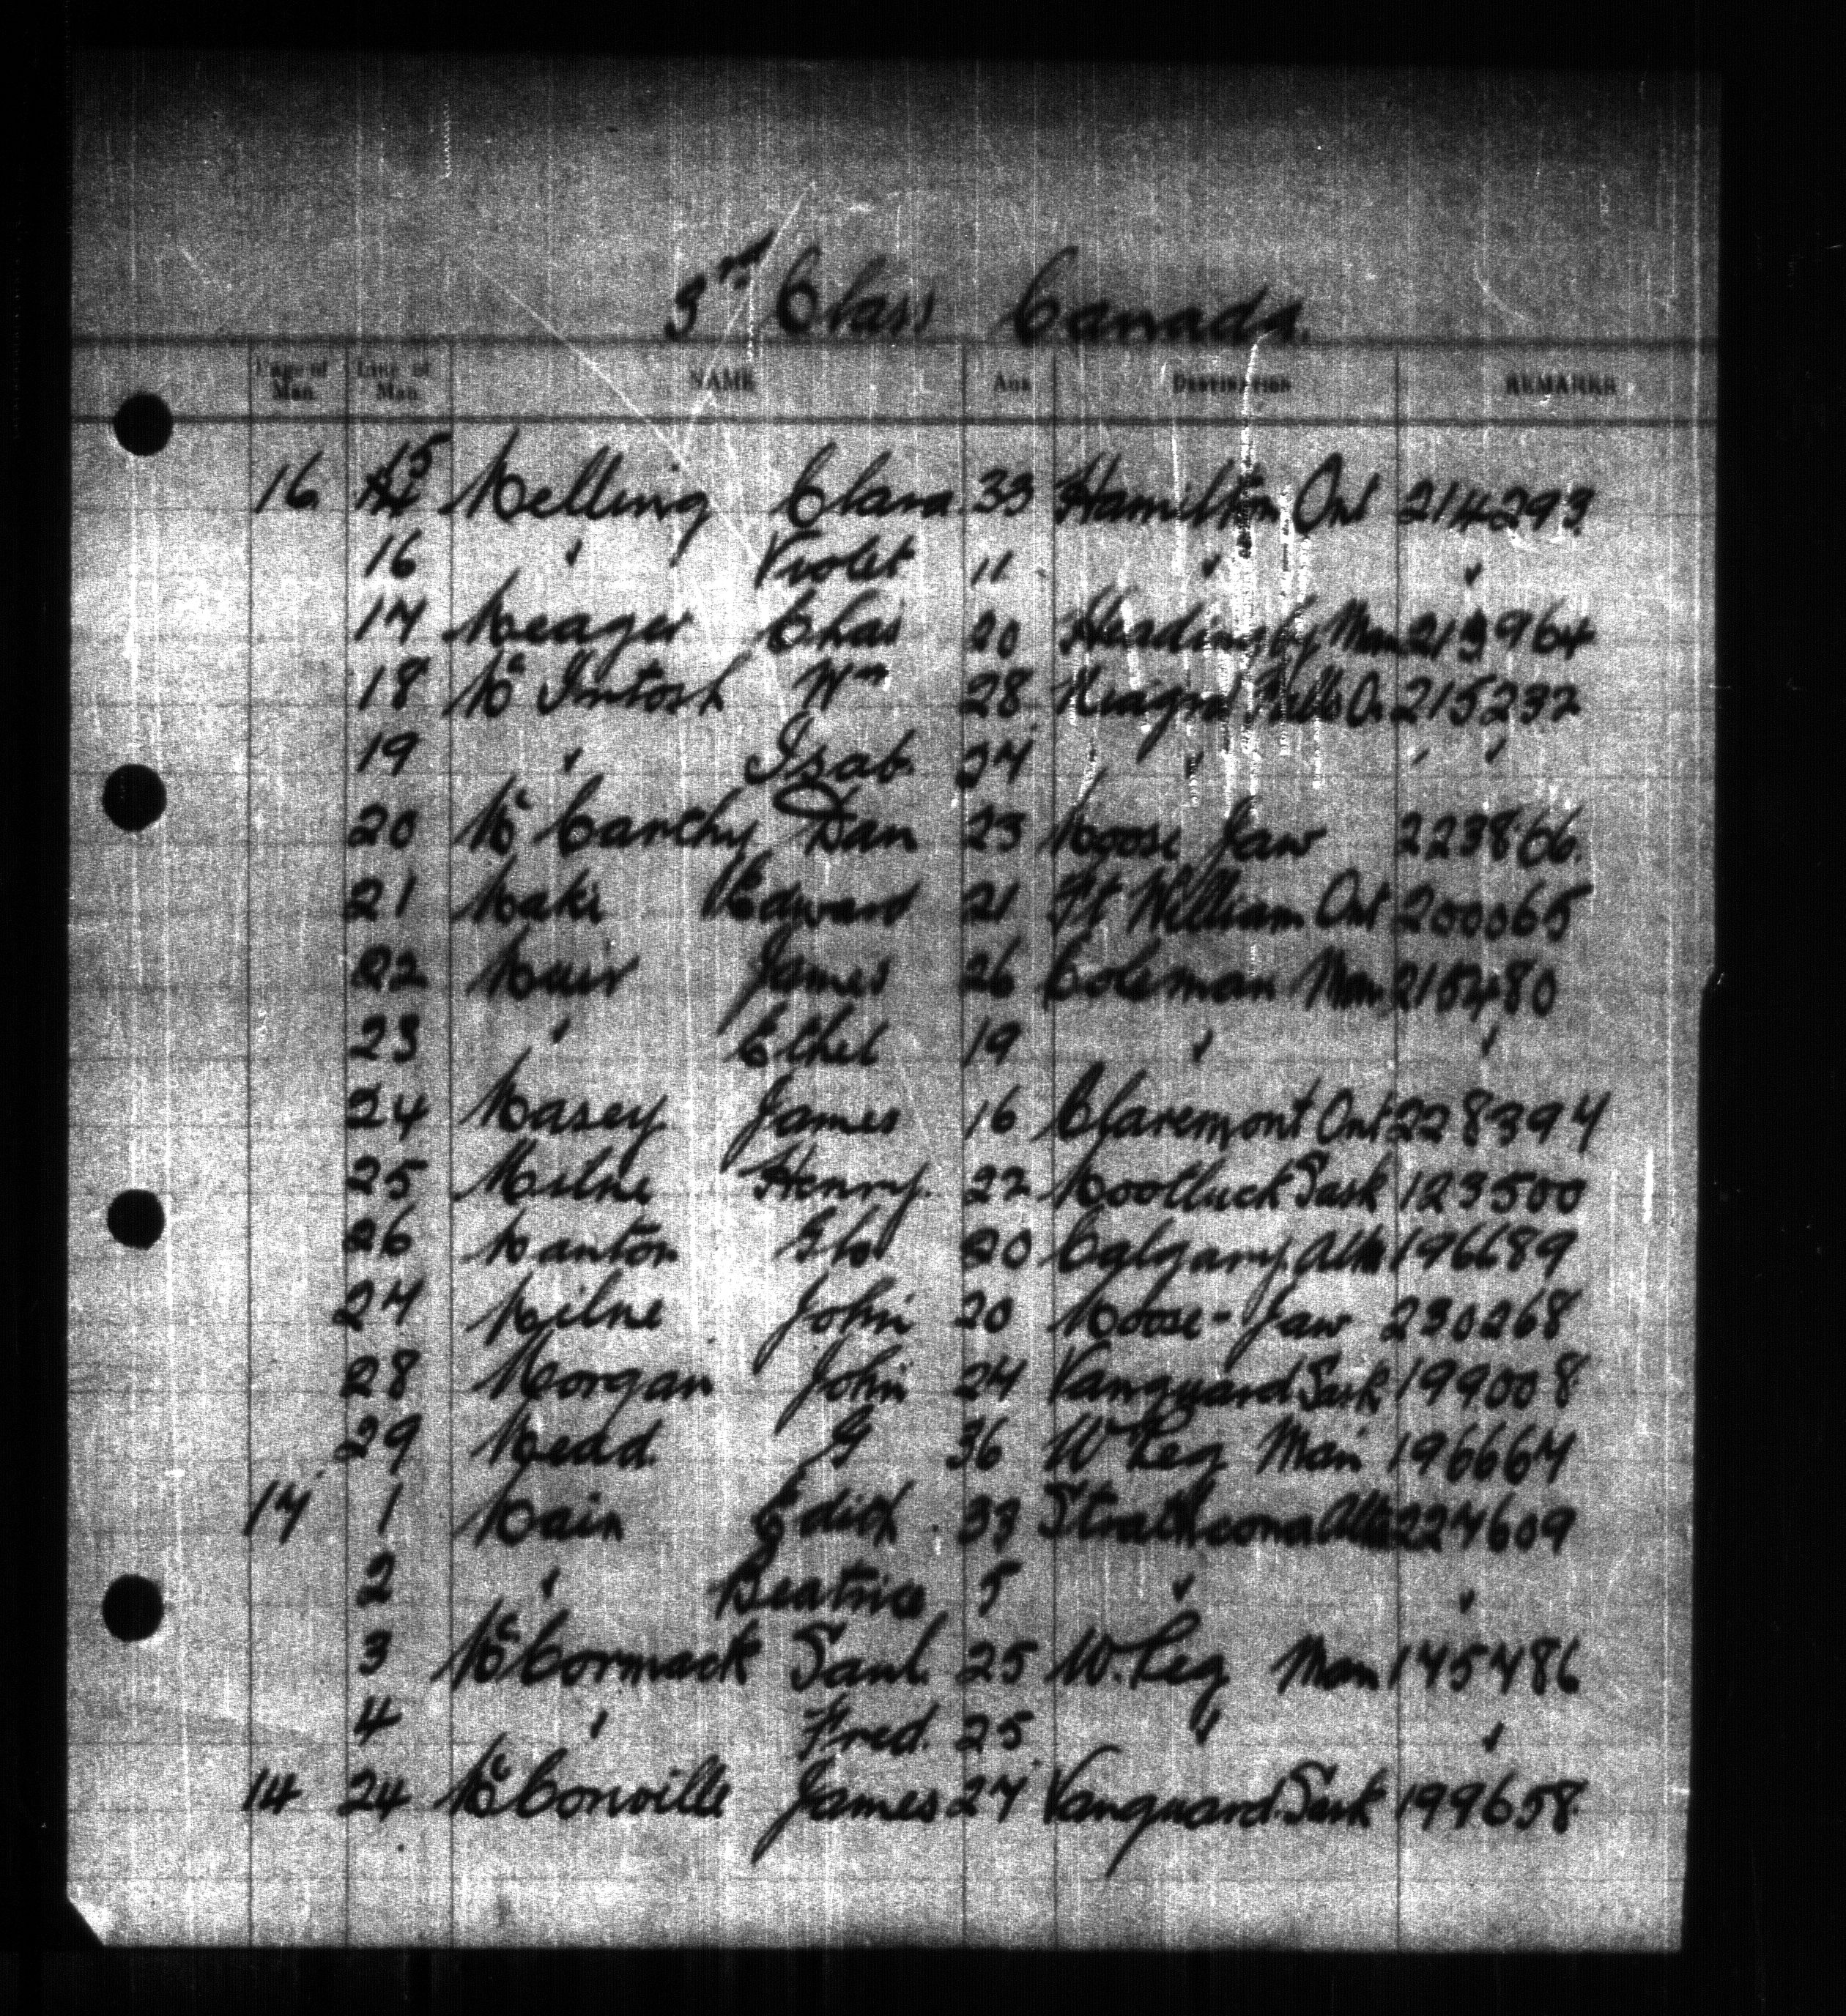 3rd Class Canada.
Page of Man. Line of Man. NAME Age DESTINATION REMARKS
16 15 Melling Clara 33 Hamilton Ont 214293
16 " Violet 11 " "
17 Meager Chas 20 Headingly Man 213964
18 McIntosh Wm 28 Niagra Falls O. 215232
19 " Isab. 24 " " "
20 McCarthy Dan 23 Moose Jaw 223866.
21 Maki Edward 21 Ft William Ont 200065
22 Muir James 26 Coleman Man
23 " Ethel 19 " "
24 Masey James 16 Claremont Ont 228397
25 Milne Henry. 22 Sask 123500
26 Manton Geo 20 Calgary. Alta 196689
27 Milne John 20 Moose-Jaw 230268
28 Morgan John 24 Vanguard Sask 199008
29 Mead. G 36 W Peg Man 196667
17 1 Main Edith 33 Strathcona Alta 227609
2 " Beatrice 5 " "
3 McCormack Saml. 25 W. Peg Man 175786
4 " Fred. 25 " "
14 24 McConville James 27 Vanguard. Sask 199658.